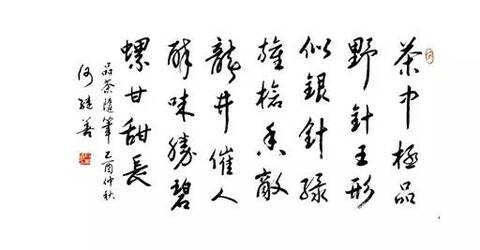 茶中極品
野針王形
似銀針綠
旗槍香敵
龍井催人
醉味勝碧
螺甘甜長
品茶隨筆 乙酉仲秋
何繼善